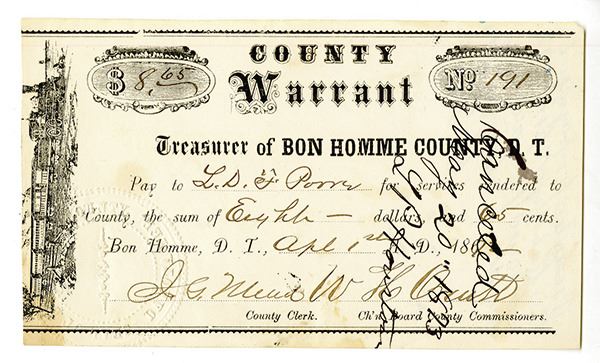 COUNTY
$ 8,65
Warrant
No. 191
Treasurer of BON HOMME COUNTY, D. T.
Pay to L. D. F Poore for services rendered to
County, the sum of Eight — dollars, and 65 cents.
Bon Homme, D. T., Apl 1st A. D., 186
J. G. Mead W H
County Clerk. Ch'n Board County Commissioners.
Cancelled
May 20 1873